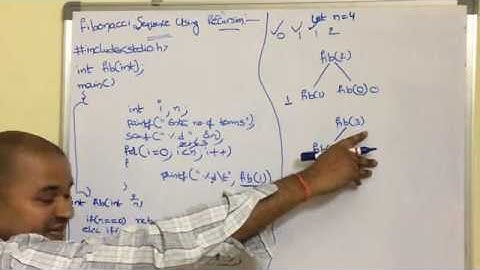 Fibonacci Sequence Using Recursion
#include<stdio.h>
int fib(int);
main()
{
int i, n;
printf("Enter no of terms");
scanf("%d", &n);
for(i=0, i<n, i++)
{
printf("%d\t", fib(i));
int fib(int n)
if(n==0) ret
else if(
Let n=4
0 1 1 2
fib(2)
1 fib(1) fib(0) 0
fib(3)